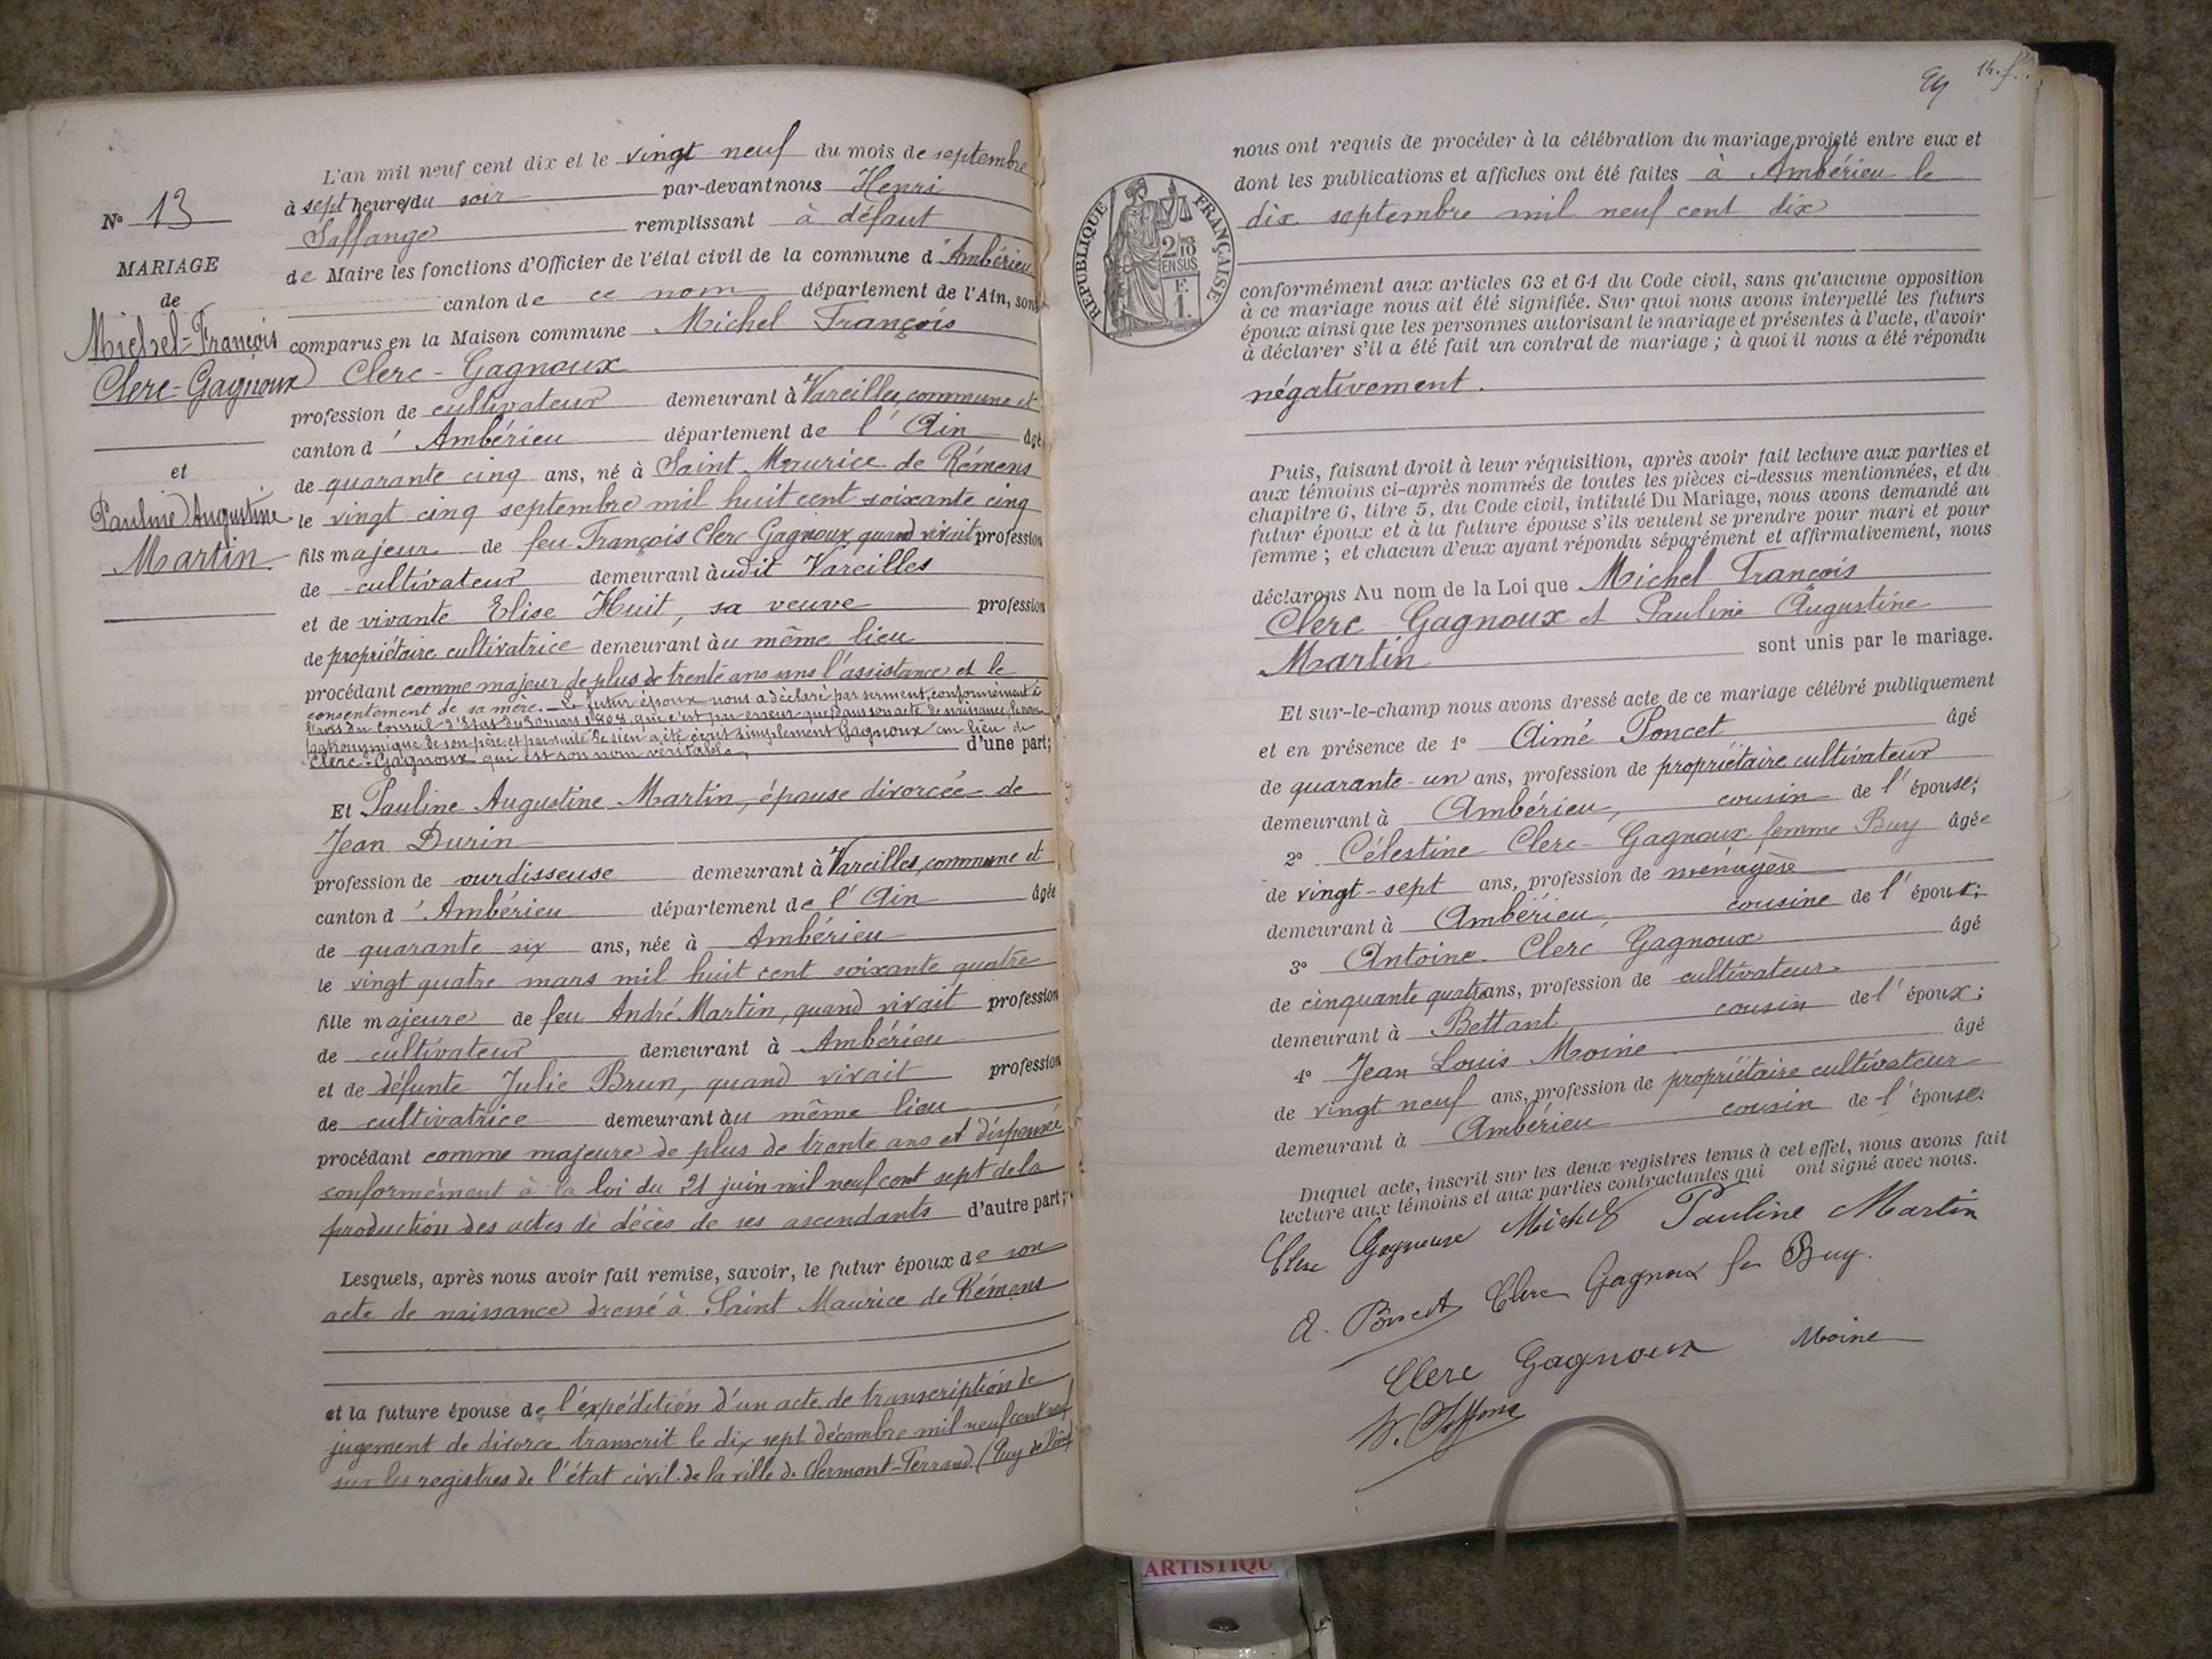 N° 13
MARIAGE
de
Michel-François
Clerc-Gagnoux
et
Pauline Augustine
Martin
L'an mil neuf cent dix et le vingt neuf du mois de septembre
à sept heures du soir par-devant nous Henri
Saffange remplissant à défaut
de Maire les fonctions d'Officier de l'état civil de la commune d'Ambérieu
canton de ce nom département de l'Ain, sont
comparus en la Maison commune Michel François
Clerc-Gagnoux
profession de cultivateur demeurant à Vareilles, commune et
canton d'Ambérieu département de l'Ain âgé
de quarante cinq ans, né à Saint Maurice de Rémens
le vingt cinq septembre mil huit cent soixante cinq
fils majeur de feu François Clerc-Gagnoux quand vivait profession
de cultivateur demeurant audit Vareilles
et de vivante Elise Huit, sa veuve profession
de propriétaire cultivatrice demeurant au même lieu
procédant comme majeur de plus de trente ans sans l'assistance et le
consentement de sa mère. - Le futur époux nous a déclaré par serment, conformément à
l'avis du Conseil d'Etat du 30 mars 1808, que c'est par erreur que dans son acte de naissance le nom
patronymique de son père et par suite le sien a été écrit simplement Gagnoux au lieu de
Clerc-Gagnoux qui est son nom véritable, d'une part;
Et Pauline Augustine Martin, épouse divorcée de
Jean Durin
profession de ourdisseuse demeurant à Vareilles, commune et
canton d'Ambérieu département de l'Ain âgée
de quarante six ans, née à Ambérieu
le vingt quatre mars mil huit cent soixante quatre
fille majeure de feu André Martin, quand vivait profession
de cultivateur demeurant à Ambérieu
et de défunte Julie Brun, quand vivait profession
de cultivatrice demeurant au même lieu
procédant comme majeure de plus de trente ans et dispensée
conformément à la loi du 21 juin mil neuf cent sept de la
production des actes de décès de ses ascendants d'autre part;
Lesquels, après nous avoir fait remise, savoir, le futur époux de son
acte de naissance dressé à Saint Maurice de Rémens
et la future épouse de l'expédition d'un acte de transcription de
jugement de divorce transcrit le dix sept décembre mil neuf cent neuf
sur les registres de l'état civil de la ville de Clermont-Ferrand (Puy de Dôme)
14.
RÉPUBLIQUE FRANÇAISE
2/10
EN SUS
F.
1.
nous ont requis de procéder à la célébration du mariage projeté entre eux et
dont les publications et affiches ont été faites à Ambérieu le
dix septembre mil neuf cent dix
conformément aux articles 63 et 64 du Code civil, sans qu'aucune opposition
à ce mariage nous ait été signifiée. Sur quoi nous avons interpellé les futurs
époux ainsi que les personnes autorisant le mariage et présentes à l'acte, d'avoir
à déclarer s'il a été fait un contrat de mariage; à quoi il nous a été répondu
négativement.
Puis, faisant droit à leur réquisition, après avoir fait lecture aux parties et
aux témoins ci-après nommés de toutes les pièces ci-dessus mentionnées, et du
chapitre 6, titre 5, du Code civil, intitulé Du Mariage, nous avons demandé au
futur époux et à la future épouse s'ils veulent se prendre pour mari et pour
femme; et chacun d'eux ayant répondu séparément et affirmativement, nous
déclarons Au nom de la Loi que Michel François
Clerc Gagnoux et Pauline Augustine
Martin sont unis par le mariage.
Et sur-le-champ nous avons dressé acte de ce mariage célébré publiquement
et en présence de 1° Aimé Poncet âgé
de quarante-un ans, profession de propriétaire cultivateur
demeurant à Ambérieu, cousin de l'épouse;
2° Célestine Clerc-Gagnoux femme Buy âgée
de vingt-sept ans, profession de ménagère
demeurant à Ambérieu, cousine de l'époux;
3° Antoine Clerc Gagnoux âgé
de cinquante quatre ans, profession de cultivateur
demeurant à Bettant cousin de l'époux;
4° Jean Louis Moine âgé
de vingt neuf ans, profession de propriétaire cultivateur
demeurant à Ambérieu cousin de l'épouse.
Duquel acte, inscrit sur les deux registres tenus à cet effet, nous avons fait
lecture aux témoins et aux parties contractantes qui ont signé avec nous.
Clerc Gagnoux Michel Pauline Martin
A. Poncet Clerc Gagnoux fe Buy.
Clerc Gagnoux Moine
ARTISTIQU